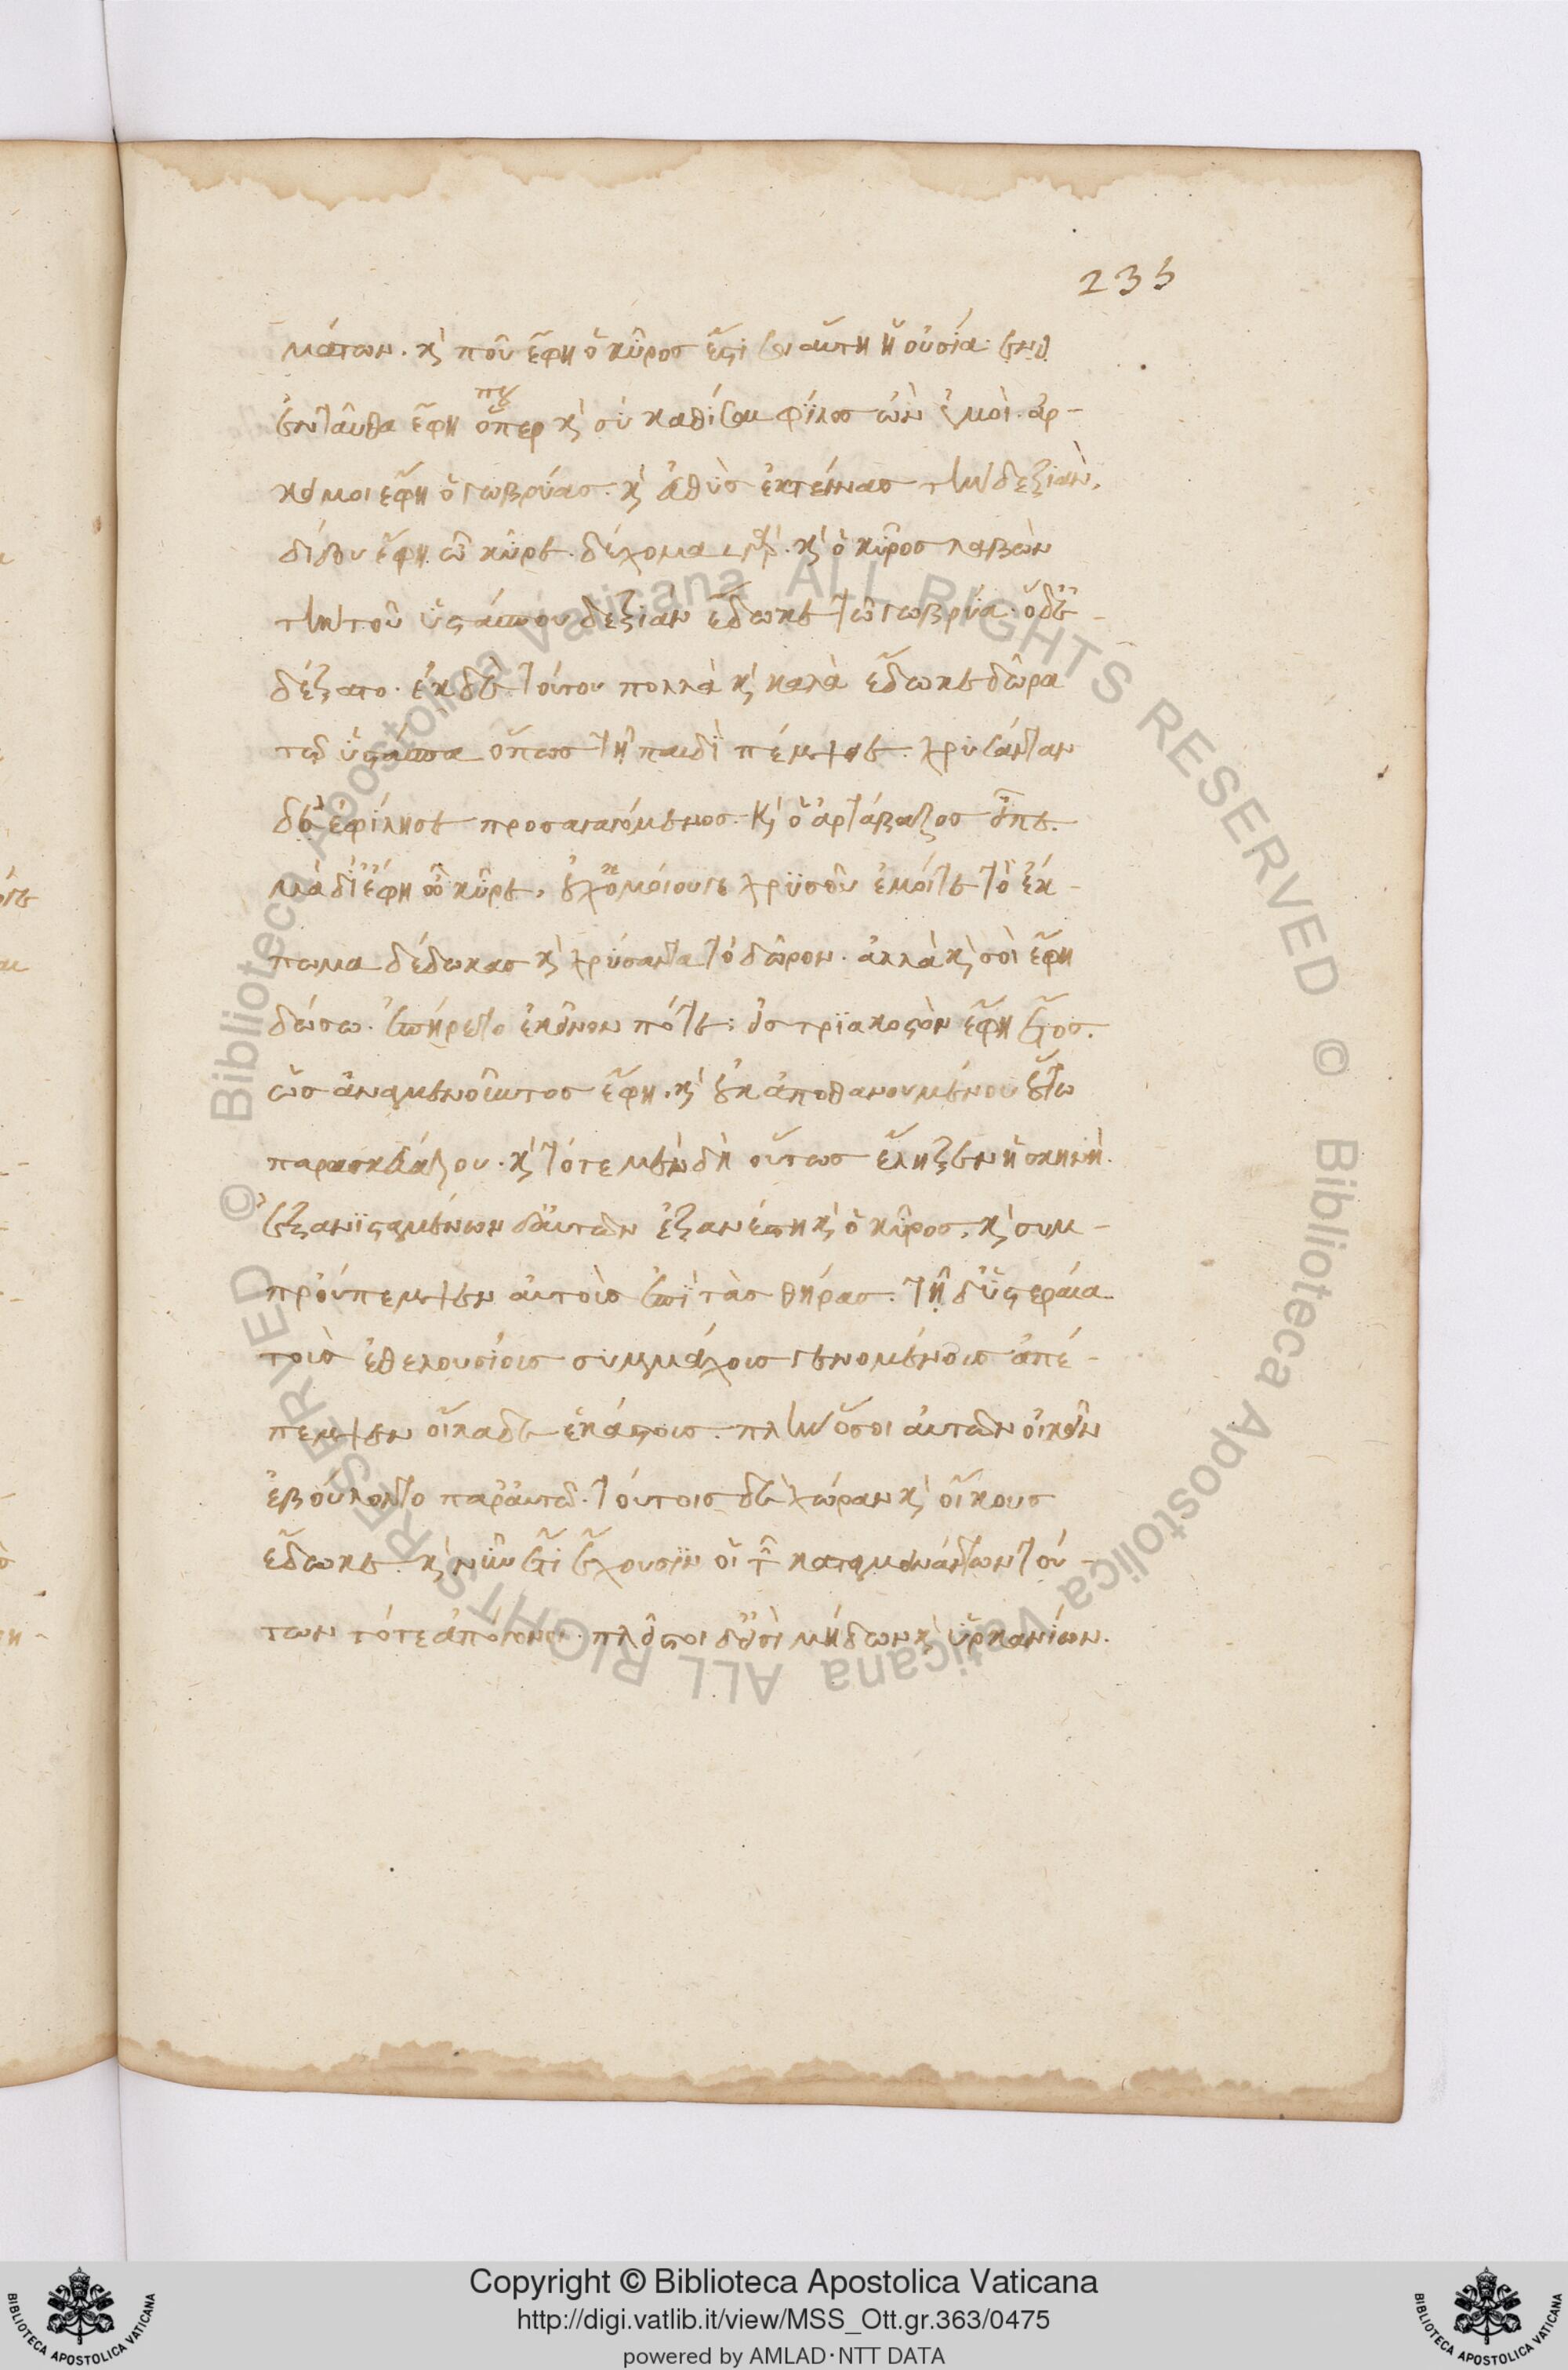 235
μάτων. κ̀ ποῦ ἔφη ὁ κῦρος ἔστι σοι αὕτη ἡ οὐσία· ἐν
ἐνταῦθα ἔφη ὅπερ κ̀ σὺ καθίζεις φίλος ὢν ἐμοὶ. ἀρ-
που
κεῖ μοι ἔφη ὁ γωβρύας. κ̀ εὐθὺς ἐκτείνας τὴν δεξιὰν,
δίδου ἔφη ὦ κῦρε. δέχομαι γάρ. κ̀ ὁ κῦρος λαβὼν
τὴν τοῦ ὑστάσπου δεξιὰν ἔδωκε τῶ γωβρύα. ὁ δ' ἐ-
δέξατο. ἐκ δὲ τούτου πολλὰ κ̀ καλὰ ἔδωκε δῶρα
τῶ ὑστάσπα ὅπως τῇ παιδὶ πέμψειε. χρυσάνταν
δὲ ἐφίλησε προσαγαγόμενος. κ̀ ὁ ἀρτάβαζος εἶπε.
μὰ δί' ἔφη ὦ κῦρε, οὐχ ὁμοίου γε χρυσοῦ ἐμοί τε τὸ ἔκ-
πωμα δέδωκας κ̀ χρύσαντα τὸ δῶρον. ἀλλὰ κ̀ σοὶ ἔφη
δώσω. ἐπήρετο ἐκεῖνον πότε; εἰς τριακοστὸν ἔφη ἔτος.
ὡς ἀναμενοῦντος ἔφη. κ̀ οὐκ ἀποθανουμένου οὕτω
παρασκευάζου. κ̀ τότε μὲν δὴ οὕτως ἔληξεν ἡ σκηνή.
ἐξανισταμένων δ' αὐτῶν ἐξανέστη κ̀ ὁ κῦρος, κ̀ συμ-
προύπεμψεν αὐτοὺς ἐπὶ τὰς θύρας. τῇ δ' ὑστεραία
τοὺς ἐθελουσίους συμμάχους γενομένους ἀπέ-
πεμψεν οἴκαδε ἑκάστους. πλὴν ὅσοι αὐτῶν οἰκεῖν
ἐβούλοντο παρ' αὐτῶ. τούτοις δὲ χώραν κ̀ οἴκους
ἔδωκε. κ̀ νῦν ἔτι ἔχουσιν οἱ τῶν καταμεινάντων τού-
των τότε ἀπόγονοι. πλεῖστοι δ' εἰσὶ μήδων κ̀ ὑρκανίων.
Copyright © Biblioteca Apostolica Vaticana
http://digi.vatlib.it/view/MSS_Ott.gr.363/0475
powered by AMLAD·NTT DATA
BIBLIOTECA APOSTOLICA VATICANA
BIBLIOTECA APOSTOLICA VATICANA
© Biblioteca Apostolica Vaticana ALL RIGHTS RESERVED © Biblioteca Apostolica Vaticana ALL RIGHTS RESERVED